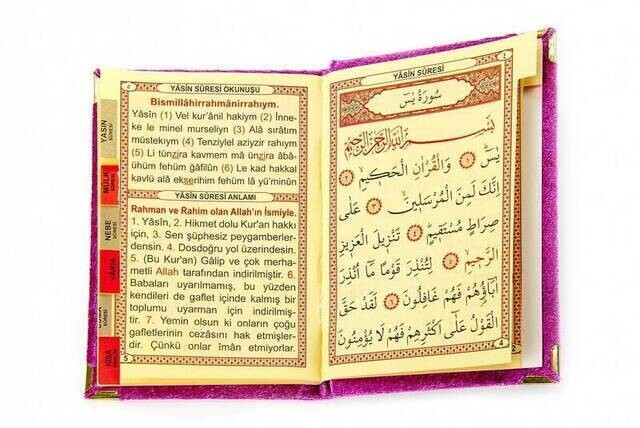 YÂSÎN SÛRESİ OKUNUŞU
Bismillâhirrahmânirrahıym.
Yâsîn (1) Vel kur'ânil hakiym (2) İnne-
ke le minel murseliyn (3) Alâ sırâtım
müstekıym (4) Tenziylel aziyzir rahıym
(5) Li tünzira kavmem mâ ünzira âbâ-
ühüm fehüm gâfilûn (6) Le kad hakkal
kavlü alâ ekserihim fehüm lâ yü'minûn
YÂSÎN SÛRESİ ANLAMI
Rahman ve Rahim olan Allah'ın İsmiyle.
1. Yâsîn, 2. Hikmet dolu Kur'an hakkı
için, 3. Sen şüphesiz peygamberler-
densin. 4. Dosdoğru yol üzerindesin.
5. (Bu Kur'an) Gâlip ve çok merha-
metli Allah tarafından indirilmiştir. 6.
Babaları uyarılmamış, bu yüzden
kendileri de gaflet içinde kalmış bir
toplumu uyarman için indirilmiş-
tir. 7. Yemin olsun ki onların çoğu
gafletlerinin cezasını hak etmişler-
dir. Çünkü onlar îmân etmiyorlar.
5
YASİN
SÛRESİ
MÜLK
NEBE
SÛRESİ
VAKIA
KISA
YÂSÎN SÛRESİ
سُورَةُ يٰسٓ
بِسْمِ اللّٰهِ الرَّحْمٰنِ الرَّحِيمِ
يٰسٓ ﴿١﴾ وَالْقُرْاٰنِ الْحَكِيمِ ﴿٢﴾
اِنَّكَ لَمِنَ الْمُرْسَلِينَ ﴿٣﴾ عَلٰى
صِرَاطٍ مُسْتَقِيمٍ ﴿٤﴾ تَنْزِيلَ الْعَزِيزِ
الرَّحِيمِ ﴿٥﴾ لِتُنْذِرَ قَوْمًا مَا اُنْذِرَ
اٰبَاؤُهُمْ فَهُمْ غَافِلُونَ ﴿٦﴾ لَقَدْ حَقَّ
الْقَوْلُ عَلٰى اَكْثَرِهِمْ فَهُمْ لَا يُؤْمِنُونَ
4
2